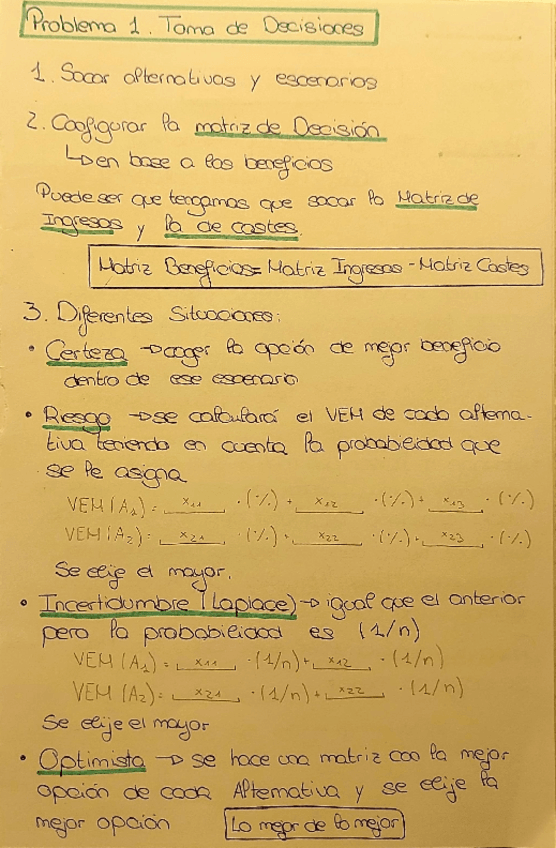 Problema 1. Toma de Decisiones
1. Sacar alternativas y escenarios
2. Configurar la matriz de Decisión
↳ en base a los beneficios
Puede ser que tengamos que sacar la Matriz de
Ingresos y la de costes.
Matriz Beneficios = Matriz Ingresos - Matriz Costes
3. Diferentes Situaciones:
• Certeza → coger la opción de mejor beneficio
dentro de ese escenario
• Riesgo → se calculará el VEM de cada alterna-
tiva teniendo en cuenta la probabilidad que
se le asigna
VEM(A₁) = x₁₁ · (%) + x₁₂ · (%) + x₁₃ · (%)
VEM(A₂) = x₂₁ · (%) + x₂₂ · (%) + x₂₃ · (%)
Se elije el mayor.
• Incertidumbre (Laplace) → igual que el anterior
pero la probabilidad es (1/n)
VEM (A₁) = x₁₁ · (1/n) + x₁₂ · (1/n)
VEM (A₂) = x₂₁ · (1/n) + x₂₂ · (1/n)
Se elije el mayor
• Optimista → se hace una matriz con la mejor
opción de cada Alternativa y se elije la
mejor opción Lo mejor de lo mejor